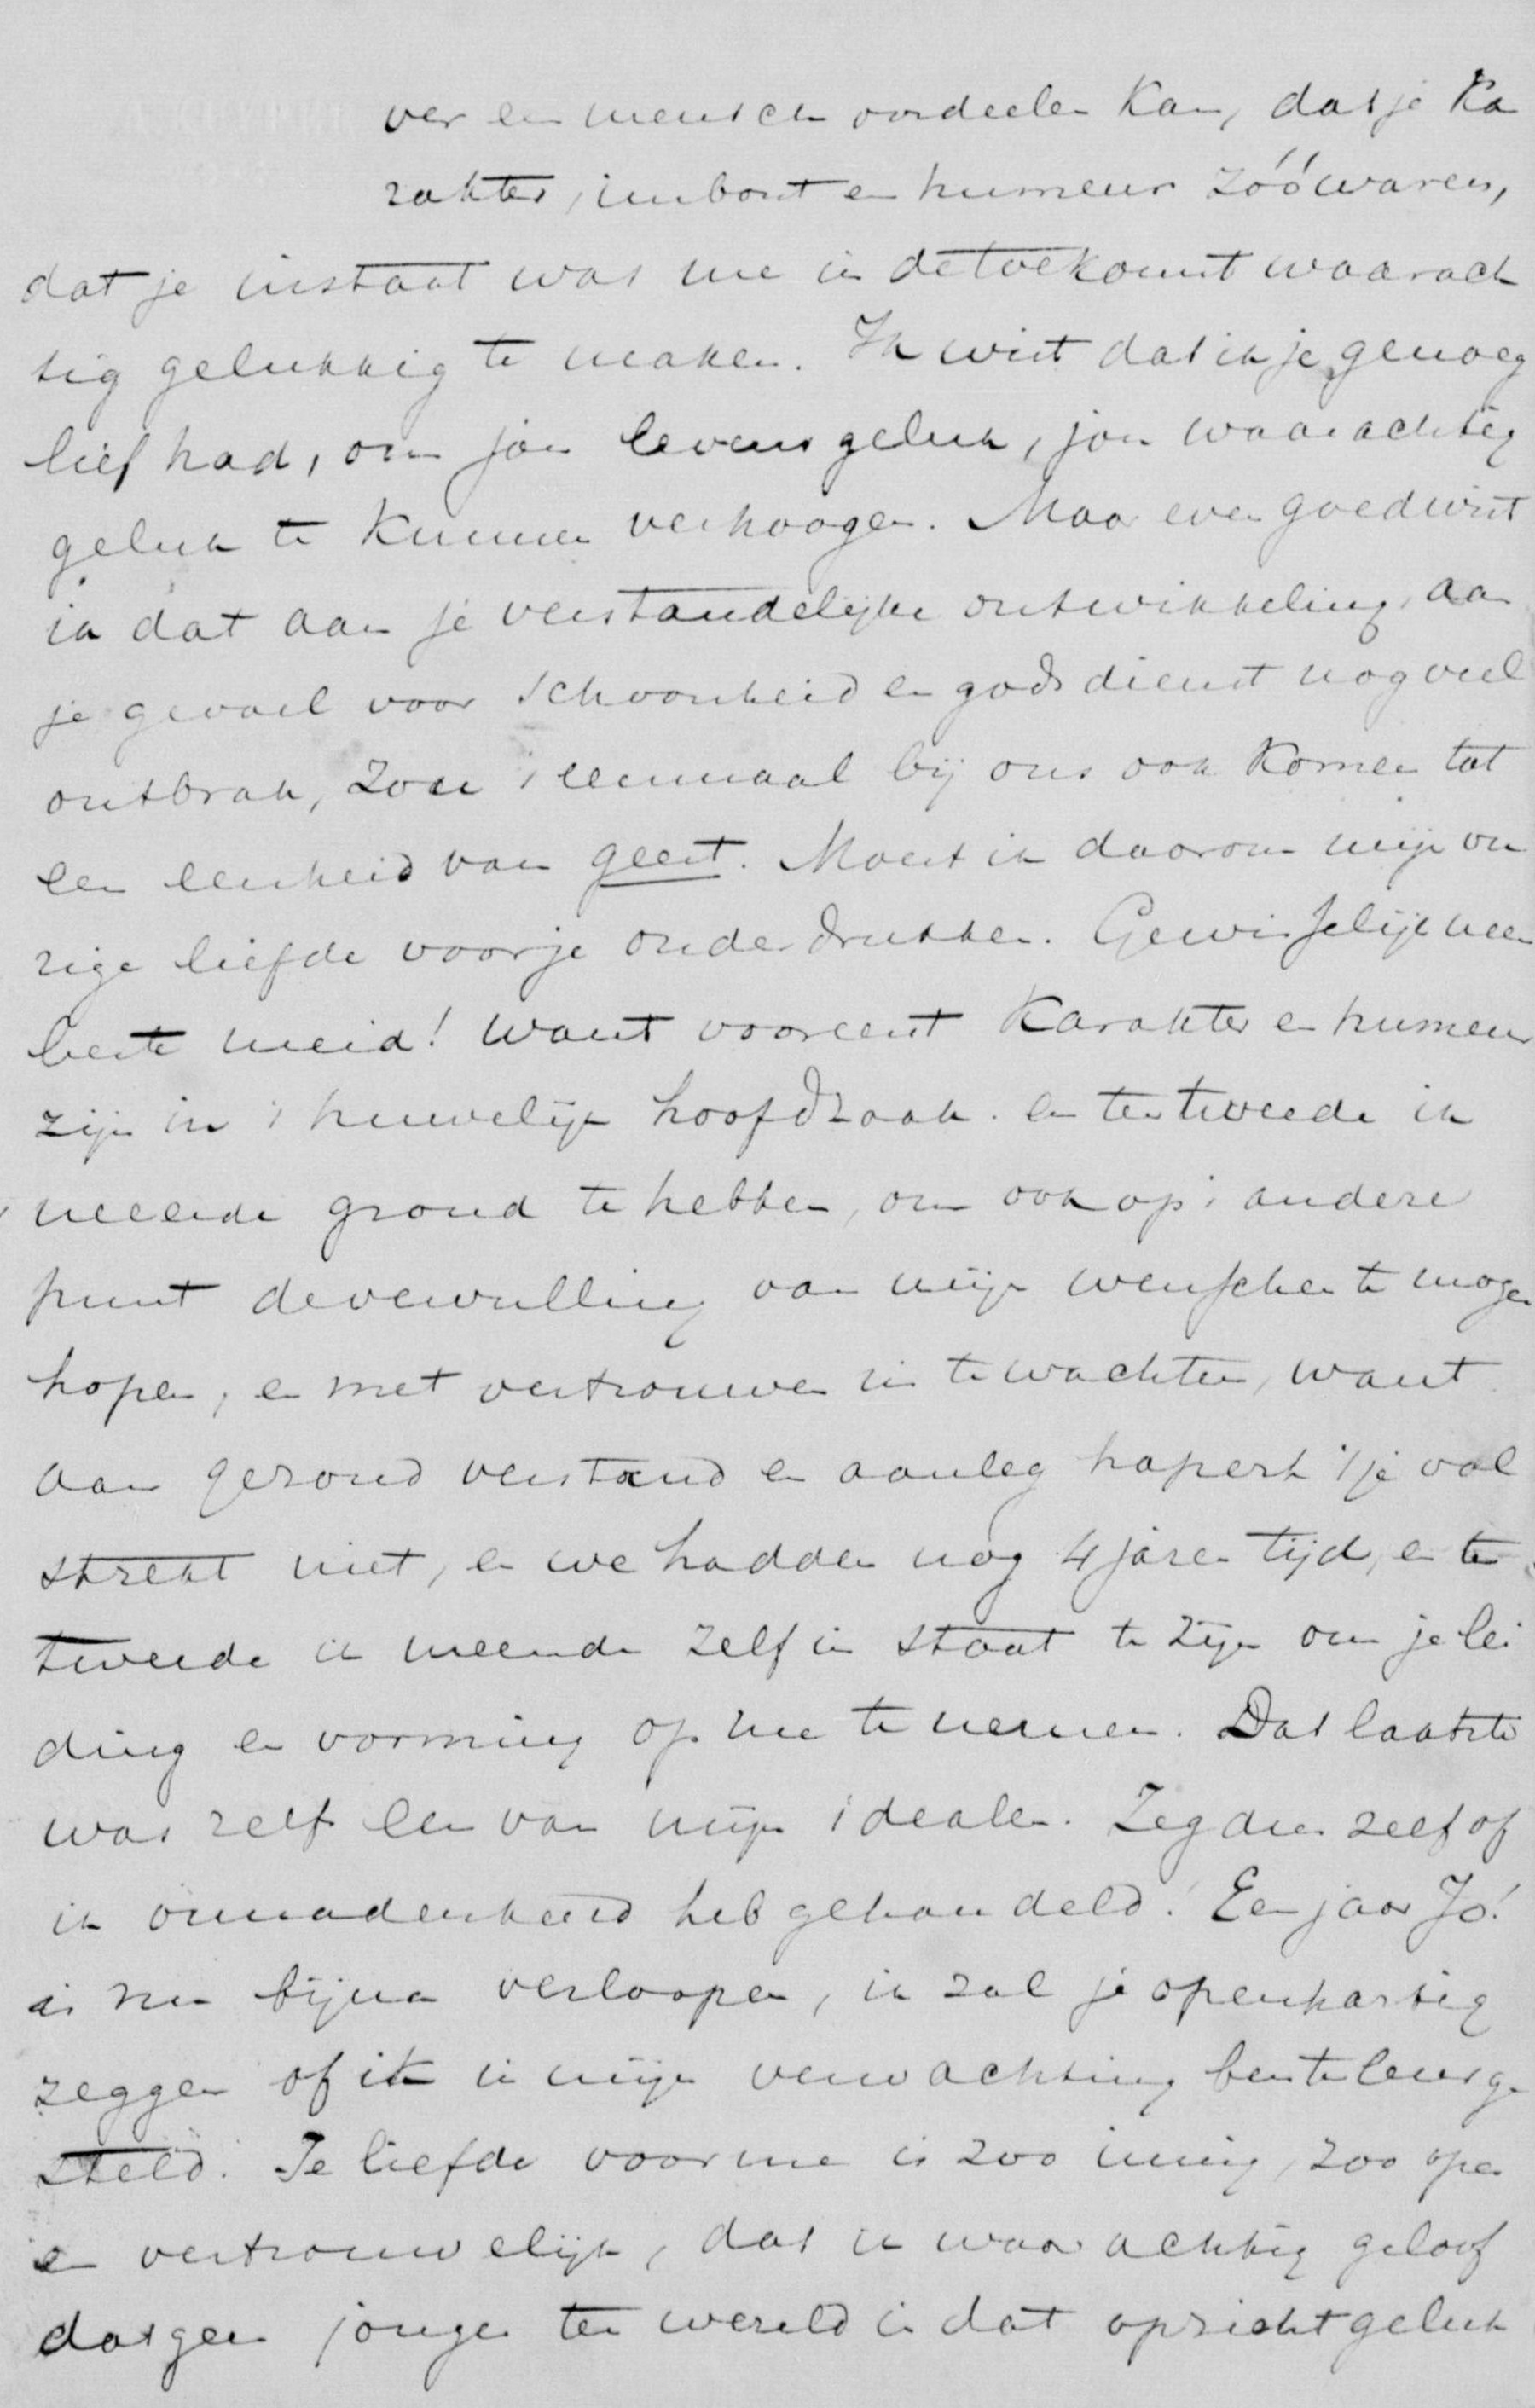 ver een mensch oordeelen kan, dat je ka
rakter, inborst en humeur zóó waren,
dat je instaat was me in de toekomst waarach
tig gelukkig te maken. Ik wist dat ik je genoeg
lief had, om jou levensgeluk, jou waarachtig
geluk te kunnen verhoogen. Maar even goed wist
ik dat aan je verstandelijke ontwikkeling, aan
je gevoel voor schoonheid en godsdienst nog veel
ontbrak, zou 't eenmaal bij ons ook komen tot
een eenheid van geest. Moest ik daarom mijn vu
rige liefde voor je onderdrukken. Gewisselijk neen
beste meid! want vooreerst karakter en humeur
zijn in 't huwelijk hoofdzaak. en ten tweede ik
meende grond te hebben, om ook op 't andere
punt de vervulling van mijn wenschen te mogen
hopen, en met vertrouwen in te wachten, want
aan gezond verstand en aanleg hapert 't je vol
strekt niet, en we hadden nog 4 jaren tijd, en ten
tweede ik meende zelf in staat te zijn om je lei
ding en vorming op me te nemen. Dat laatste
was zelf een van mijn idealen. Zeg dus zelf of
ik onnadenkend heb gehandeld! Een jaar Jo!
is nu bijna verloopen, ik zal je openhartig
zeggen of ik in mijn verwachting ben teleurge
steld. Je liefde voor me is zoo innig, zoo open
en vertrouwelijk, dat ik waarachtig geloof
dat geen jongen ter wereld is dat oprecht geluk